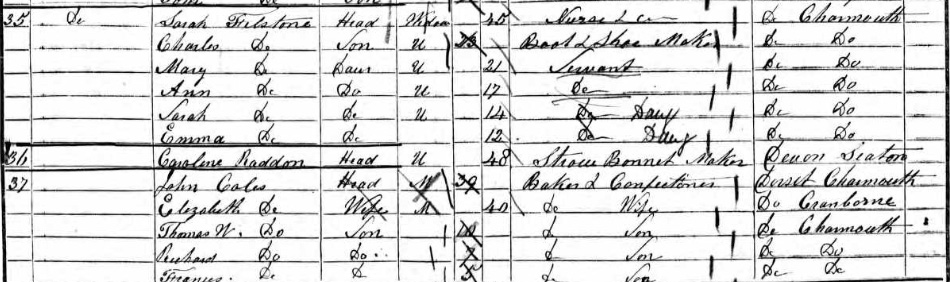 35 Do Sarah Filstone Head Widow 45 Nurse &c Do Charmouth
Charles Do Son U 23 Boot & Shoe Maker Do Do
Mary Do Daur U 21 Servant Do Do
Ann Do Do U 17 Do Do Do
Sarah Do Do U 14 Do Daily Do Do
Emma Do Do 12 Do Daily Do Do
36 Caroline Raddon Head U 48 Straw Bonnet Maker Devon Seaton
37 John Coles Head M 39 Baker & Confectioner Dorset Charmouth
Elizabeth Do Wife M 40 Do Wife Do Cranborne
Thomas W. Do Son 10 Son Do Charmouth
Richard Do Do 7 Son Do Do
Francis Do Do 5 Son Do Do